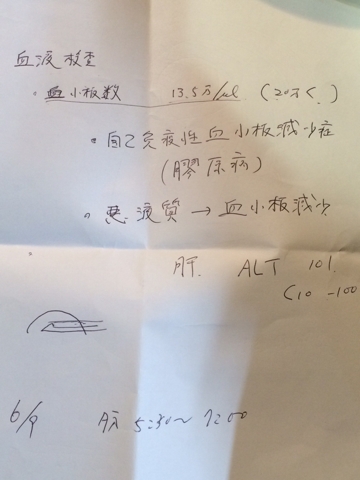 血液検査
・血小板数 13.5万/μl (20万<)
・自己免疫性血小板減少症
(膠原病)
・悪液質→血小板減少
肝. ALT 101.
(10-100
6/9 5:30~7:00